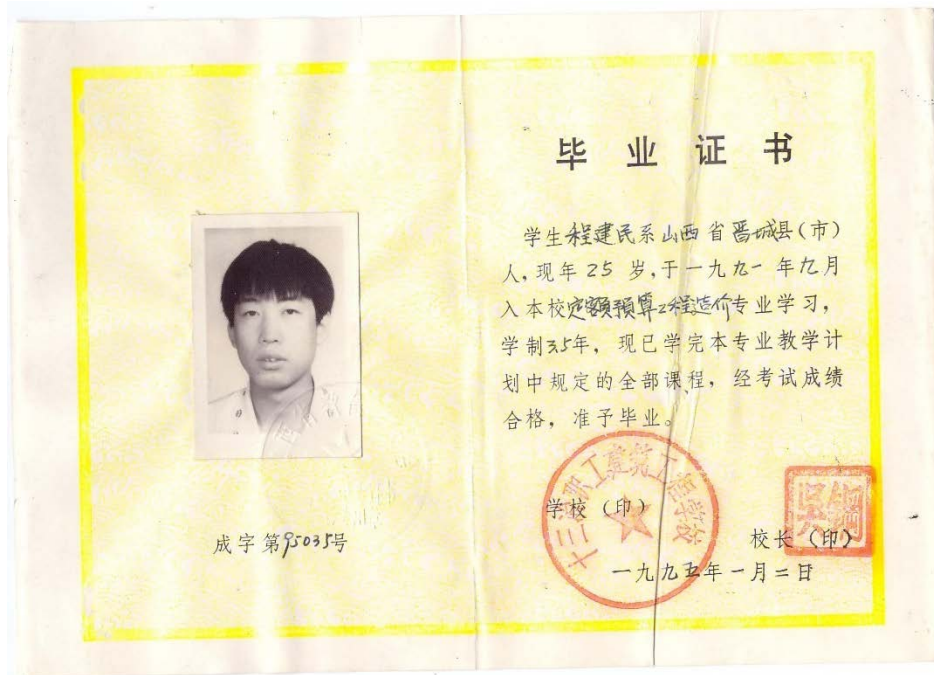 毕业证书
学生程建民系山西省晋城县(市)
人,现年25岁,于一九九一年九月
入本校定额预算工程造价专业学习,
学制3.5年,现已学完本专业教学计
划中规定的全部课程,经考试成绩
合格,准予毕业。
职工建筑工程学校
学校(印)
校长(印)
一九九五年一月二日
成字第95035号